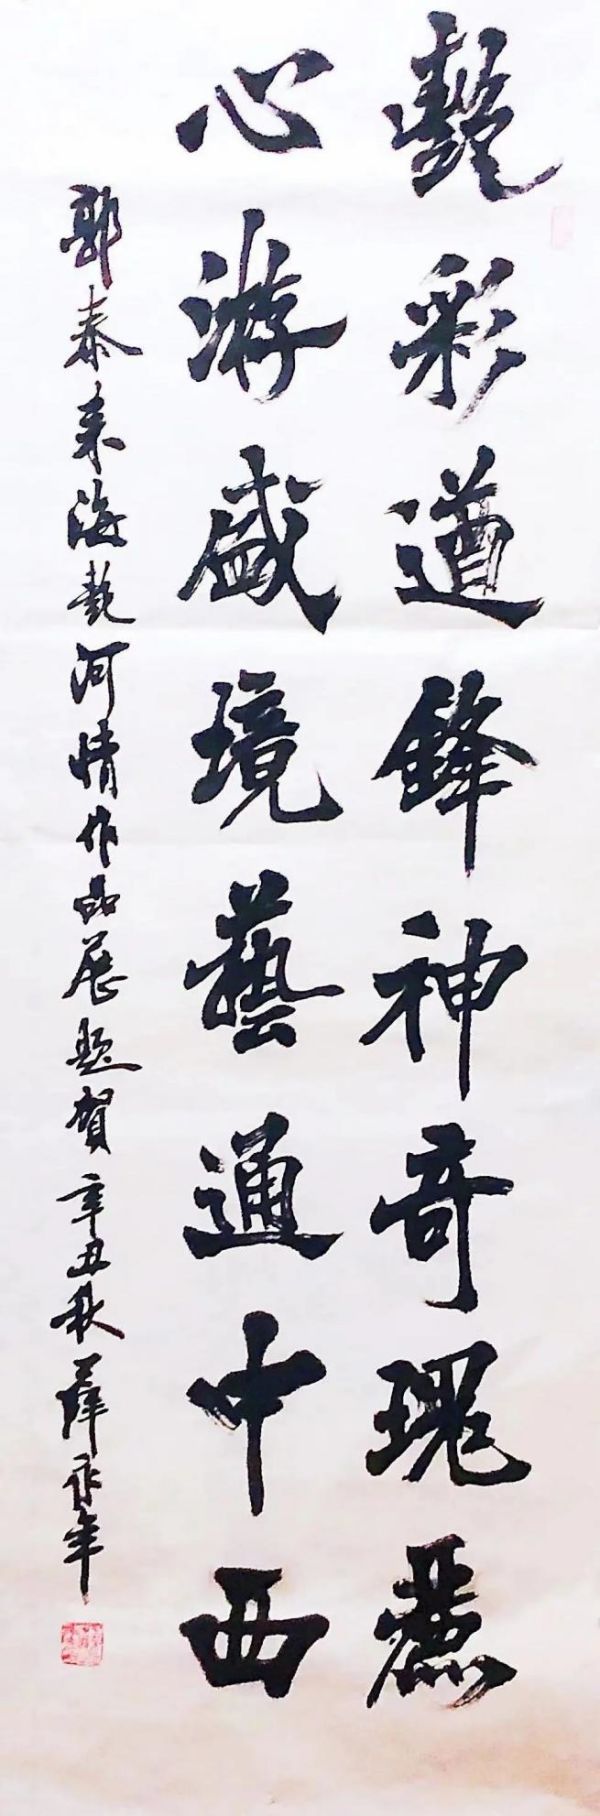 彩遒鋒神奇瑰麗
心游盛境藝通中西
郭泰来海藝河情作品展题賀辛丑秋薛永年